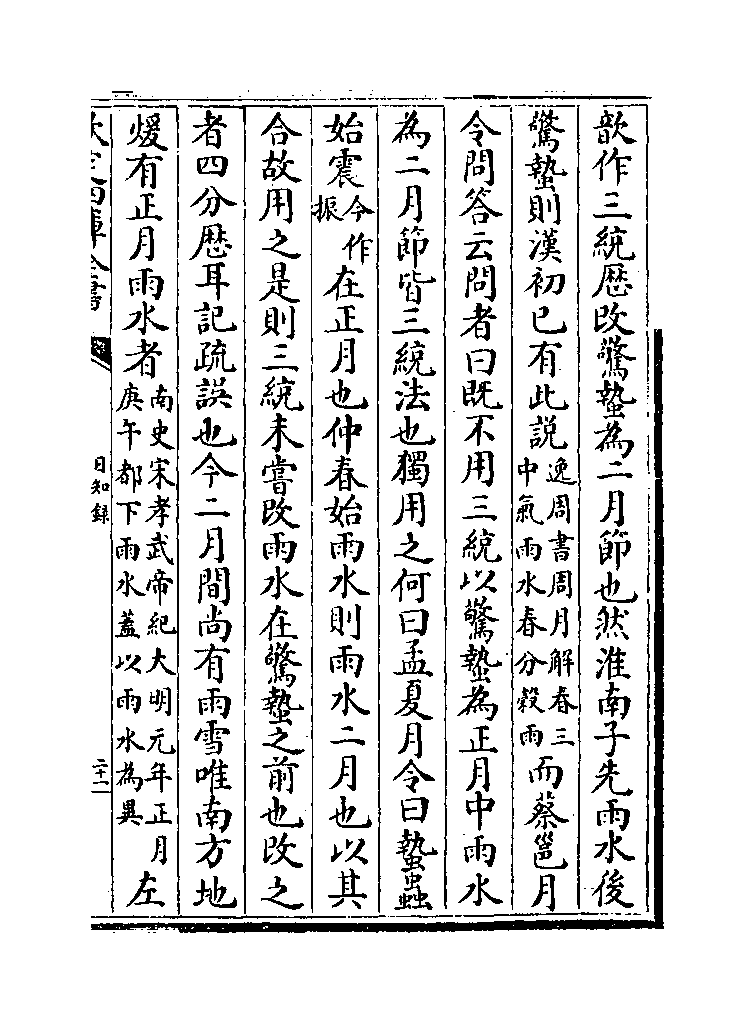 歆作三統歴改驚蟄為二月節也然淮南子先雨水後
驚蟄則漢初已有此説逸周書周月解春三中氣雨水春分穀雨而蔡邕月
令問答云問者曰既不用三統以驚蟄為正月中雨水
為二月節皆三統法也獨用之何曰孟夏月令曰蟄蟲
始震今作振在正月也仲春始雨水則雨水二月也以其
合故用之是則三統未嘗改雨水在驚蟄之前也改之
者四分歴耳記疏誤也今二月間尚有雨雪唯南方地
煖有正月雨水者南史宋孝武帝紀大明元年正月庚午都下雨水蓋以雨水為異左
欽定四庫全書
日知録
二十一